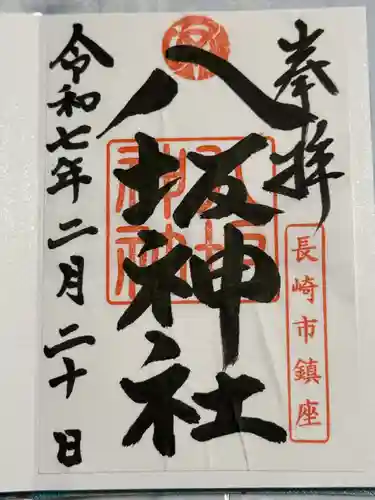 奉拝
長崎市鎮座
八坂神社
八坂神社
令和七年二月二十日